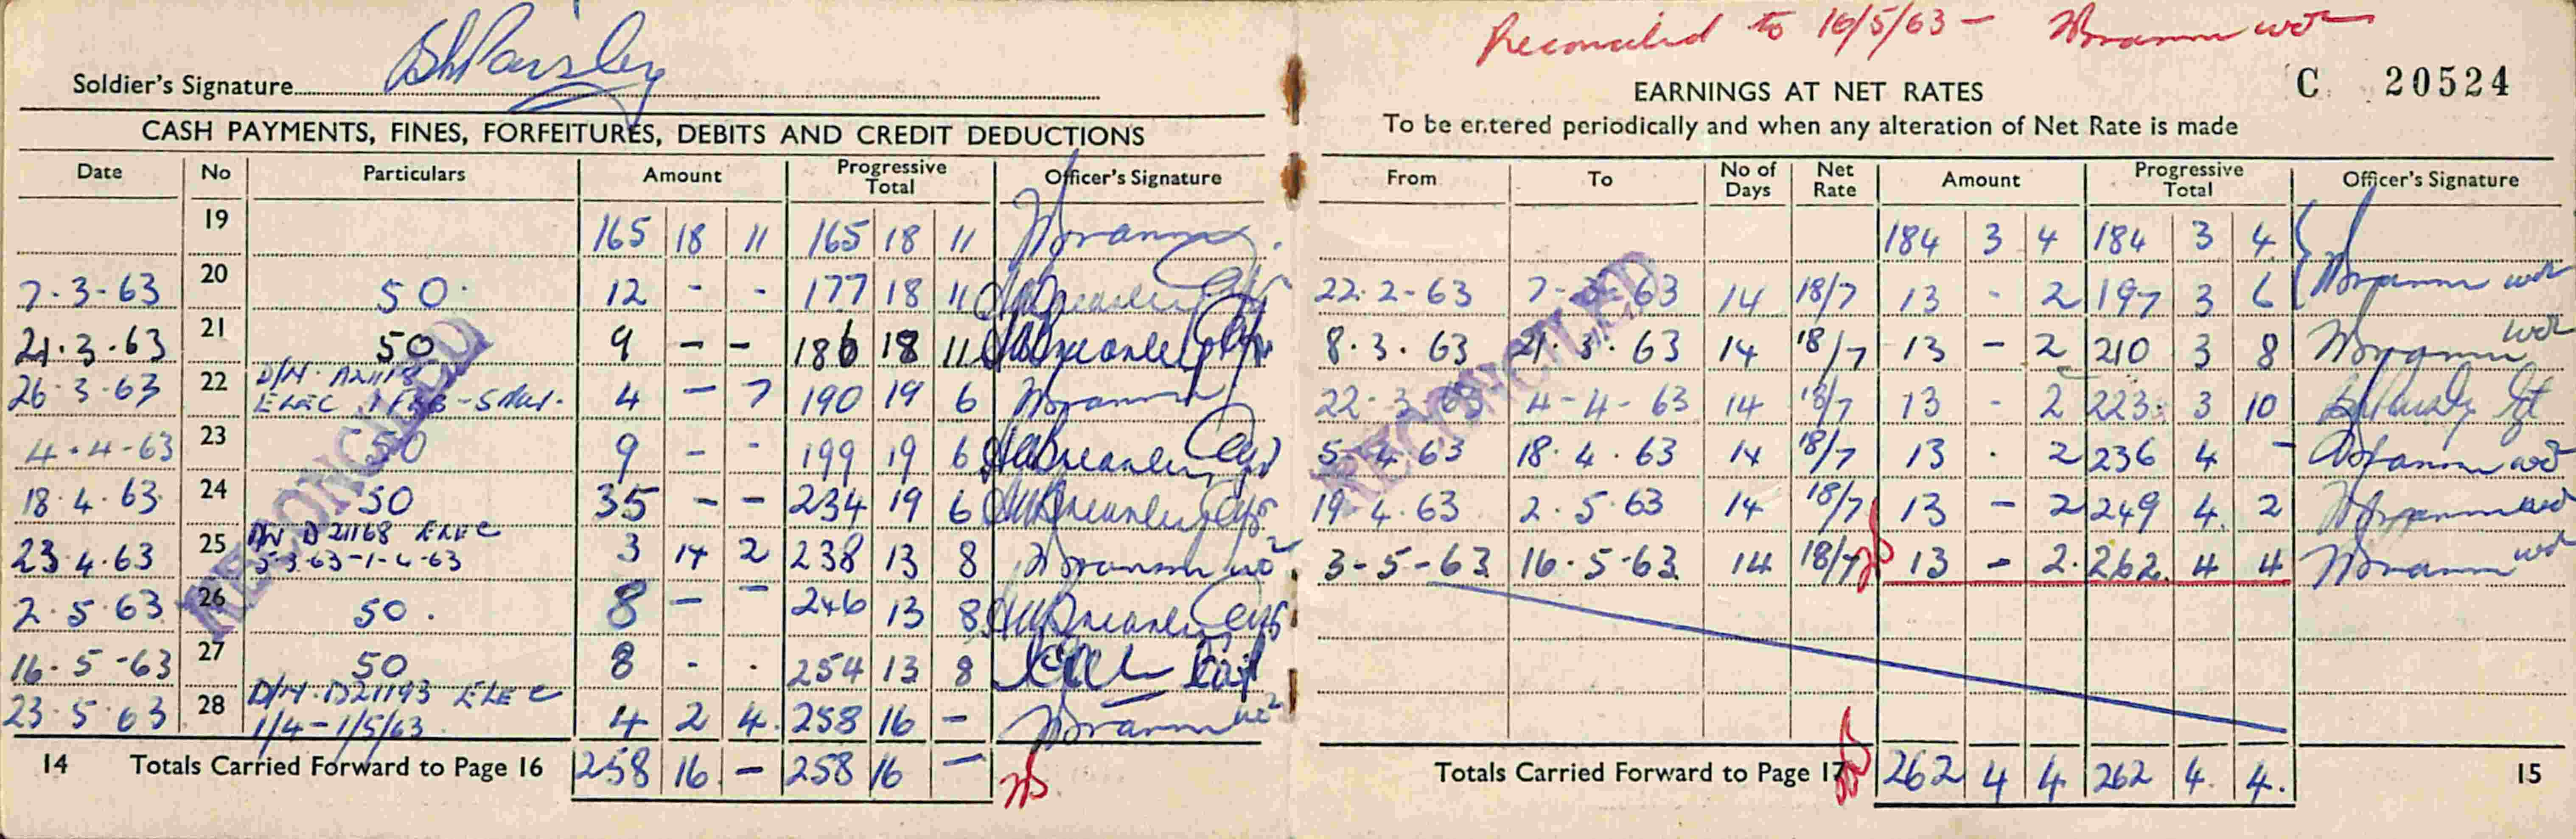 Reconciled to 16/5/63 -
Soldier's Signature
EARNINGS AT NET RATES
C 20524
CASH PAYMENTS, FINES, FORFEITURES, DEBITS AND CREDIT DEDUCTIONS
To be entered periodically and when any alteration of Net Rate is made
Date No Particulars Amount Progressive Total Officer's Signature
19 165 18 11 165 18 11
7.3-63 20 50. 12 - - 177 18 11
21.3.63 21 50 9 - - 186 18 11
26.3.63 22 ELEC 4 - 7 190 19 6
4.4-63 23 50 9 - - 199 19 6
18.4.63 24 50 35 - - 234 19 6
23.4.63 25 D21168 ELEC 3 14 2 238 13 8
2.5.63 26 50. 8 - - 246 13 8
16-5-63 27 50 8 - . 254 13 8
23.5.63 28 D/N. D21193 ELEC
1/4-1/5/63. 4 2 4. 258 16 -
14 Totals Carried Forward to Page 16 258 16 - 258 16 -
RECONCILED
From To No of Days Net Rate Amount Progressive Total Officer's Signature
184 3 4 184 3 4
22.2-63 7-3-63 14 18/7 13 - 2 197 3 6
8.3.63 21.3.63 14 18/7 13 - 2 210 3 8
22-3-63 4-4-63 14 18/7 13 - 2 223. 3 10
5-4-63 18.4.63 14 18/7 13 . 2 236 4 -
19.4.63 2.5.63 14 18/7 13 - 2 249 4. 2
3-5-63 16.5-63 14 18/7 13 - 2. 262. 4 4
Totals Carried Forward to Page 17 262 4 4 262 4. 4.
15
RECONCILED